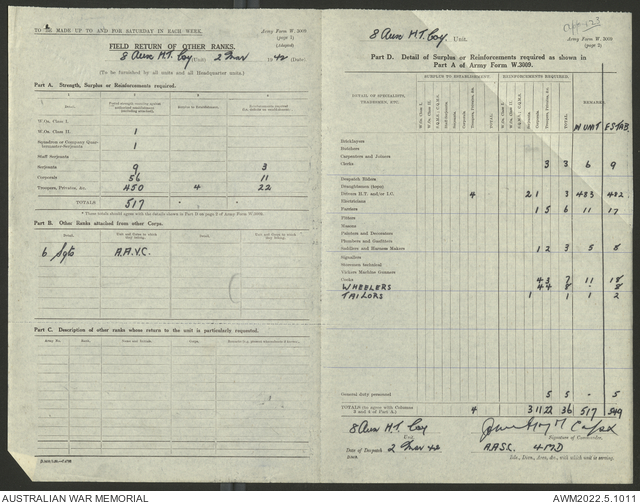 TO BE MADE UP TO AND FOR SATURDAY IN EACH WEEK.
Army Form W. 3009.
(page 1)
(Adapted)
FIELD RETURN OF OTHER RANKS.
8 Aus H.T. Coy (Unit) 2 Mar 1942 (Date)
(To be furnished by all units and all Headquarter units.)
Part A. Strength, Surplus or Reinforcements required.
1 2 3 4
W.Os. Class I.
W.Os. Class II. 1
Squadron or Company Quartermaster-Serjeants 1
Staff Serjeants
Serjeants 9 3
Corporals 56 11
Troopers, Privates, &c. 450 4 22
TOTALS 517
* These totals should agree with the details shown in Part D on page 2 of Army Form W.3009.
Part B. Other Ranks attached from other Corps.
6 Sgts A.A.V.C.
Part C. Description of other ranks whose return to the unit is particularly requested.
Army No. Rank. Name and Initials.
8 Aus H.T. Coy. Unit.
App 123
Army Form W. 3009
(page 2)
Part D. Detail of Surplus or Reinforcements required as shown in
Part A of Army Form W.3009.
DETAIL OF SPECIALISTS, TRADESMEN, ETC.
SURPLUS TO ESTABLISHMENT. REINFORCEMENTS REQUIRED.
W.Os. Class I. W.Os. Class II. Staff Serjeants. Serjeants. Corporals. Troopers, Privates, &c. TOTAL.
REMARKS
IN UNIT ESTAB.
Bricklayers
Butchers
Carpenters and Joiners
Clerks 3 3 6 9
Despatch Riders
Draughtsmen (topo)
Drivers H.T. and/or I.C. 4 2 1 3 483 482
Electricians
Farriers 1 5 6 11 17
Fitters
Masons
Painters and Decorators
Plumbers and Gasfitters
Saddlers and Harness Makers 1 2 3 5 8
Signallers
Storemen technical
Vickers Machine Gunners
Cooks 4 3 7 11 18
WHEELERS 4 4 8 - 8
TAILORS 1 1 1 2
General duty personnel 5 5 - 5
TOTALS (to agree with Columns 3 and 4 of Part A.) 4 3 11 22 36 517 549
8 Aus H.T. Coy
Unit
Date of Despatch 2 Mar 42
Signature of Commander.
A.A.S.C. 4 M.D
Bde., Divn., Area, &c., with which unit is serving.
AUSTRALIAN WAR MEMORIAL
AWM2022.5.1011